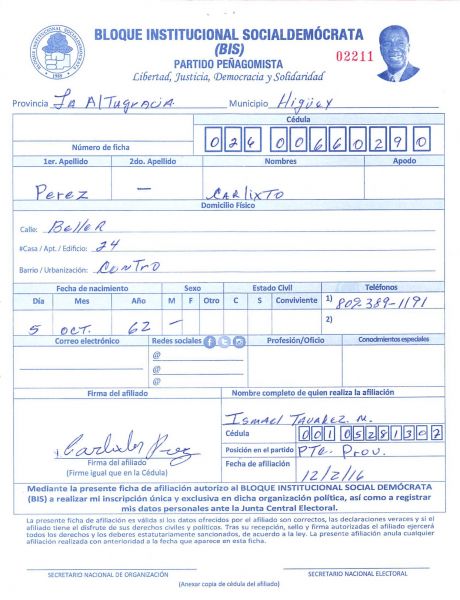 BLOQUE INSTITUCIONAL SOCIALDEMÓCRATA
(BIS)
02211
PARTIDO PEÑAGOMISTA
Libertad, Justicia, Democracia y Solidaridad
Provincia LA ALTAGRACIA Municipio Higüey
Cédula
Número de ficha 026 0066029 0
1er. Apellido 2do. Apellido Nombres Apodo
Perez — CARLIXTO
Domicilio Físico
Calle: Beller
#Casa / Apt. / Edificio: 24
Barrio / Urbanización: CENTRO
Fecha de nacimiento Sexo Estado Civil Teléfonos
Día Mes Año M F Otro C S Conviviente 1) 802 389-1191
5 OCT. 62 – 2)
Correo electrónico Redes sociales Profesión/Oficio Conocimientos especiales
@
@
@
Firma del afiliado Nombre completo de quien realiza la afiliación
ISMAEL TAVAREZ M.
Cédula
001 0528130 2
Firma del afiliado Posición en el partido PTE. PROV.
(Firme igual que en la Cédula) Fecha de afiliación
12/2/16
Mediante la presente ficha de afiliación autorizo al BLOQUE INSTITUCIONAL SOCIAL DEMÓCRATA
(BIS) a realizar mi inscripción única y exclusiva en dicha organización política, así como a registrar
mis datos personales ante la Junta Central Electoral.
La presente ficha de afiliación es válida si los datos ofrecidos por el afiliado son correctos, las declaraciones veraces y si el
afiliado tiene el disfrute de sus derechos civiles y políticos. Tras su recepción, sello y firma autorizadas el afiliado ejercerá
todos los derechos y los deberes estatutariamente sancionados, de acuerdo a la ley. La presente afiliación anula cualquier
afiliación realizada con anterioridad a la fecha que aparece en esta ficha.
SECRETARIO NACIONAL DE ORGANIZACIÓN SECRETARIO NACIONAL ELECTORAL
(Anexar copia de cédula del afiliado)